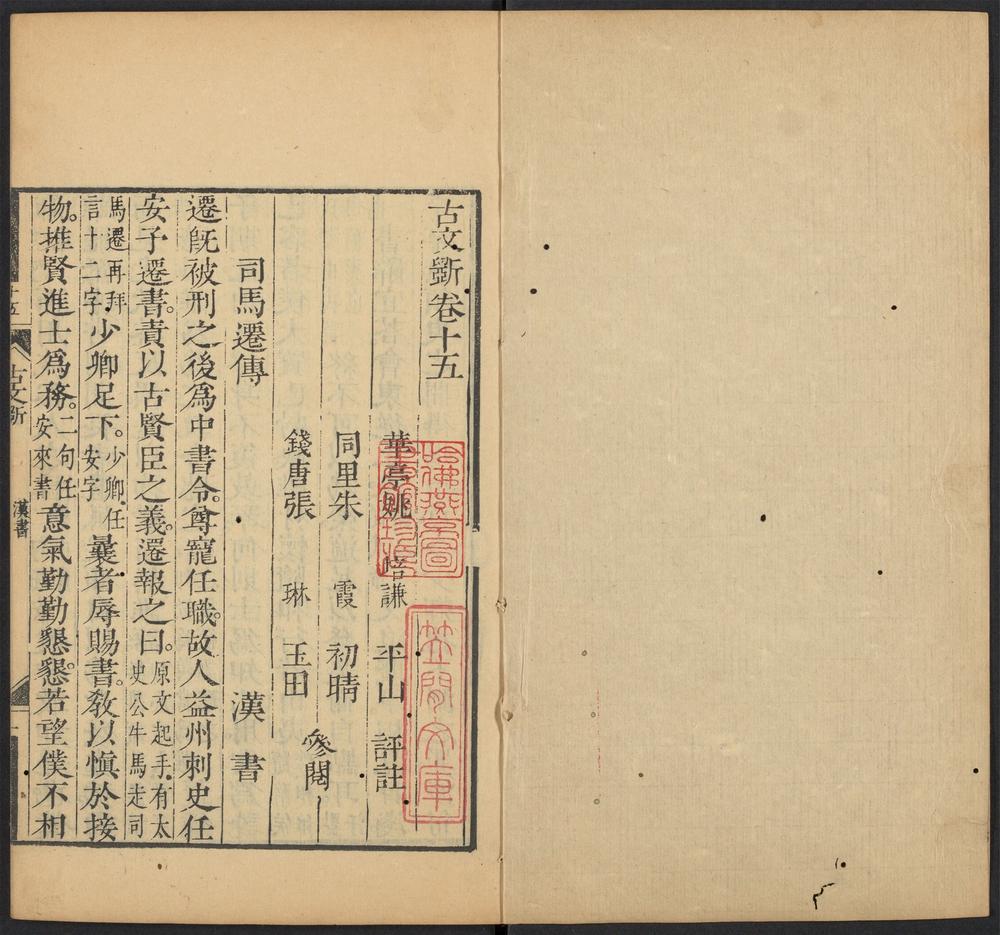 古文斲卷十五
華亭姚 培謙 平山 評註
同里朱 霞 初晴
錢唐張 琳 玉田
參閱
司馬遷傳 漢書
遷旣被刑之後爲中書令。尊寵任職。故人益州刺史任
安予遷書。責以古賢臣之義。遷報之曰。原文起手有太史公牛馬走司
馬遷再拜言十二字少卿足下。少卿任安字曩者辱賜書。敎以愼於接
物。推賢進士爲務。二句任安來書意氣勤勤懇懇。若望僕不相
古文斲 漢書
哈佛燕京圖書館珍藏印
文庫